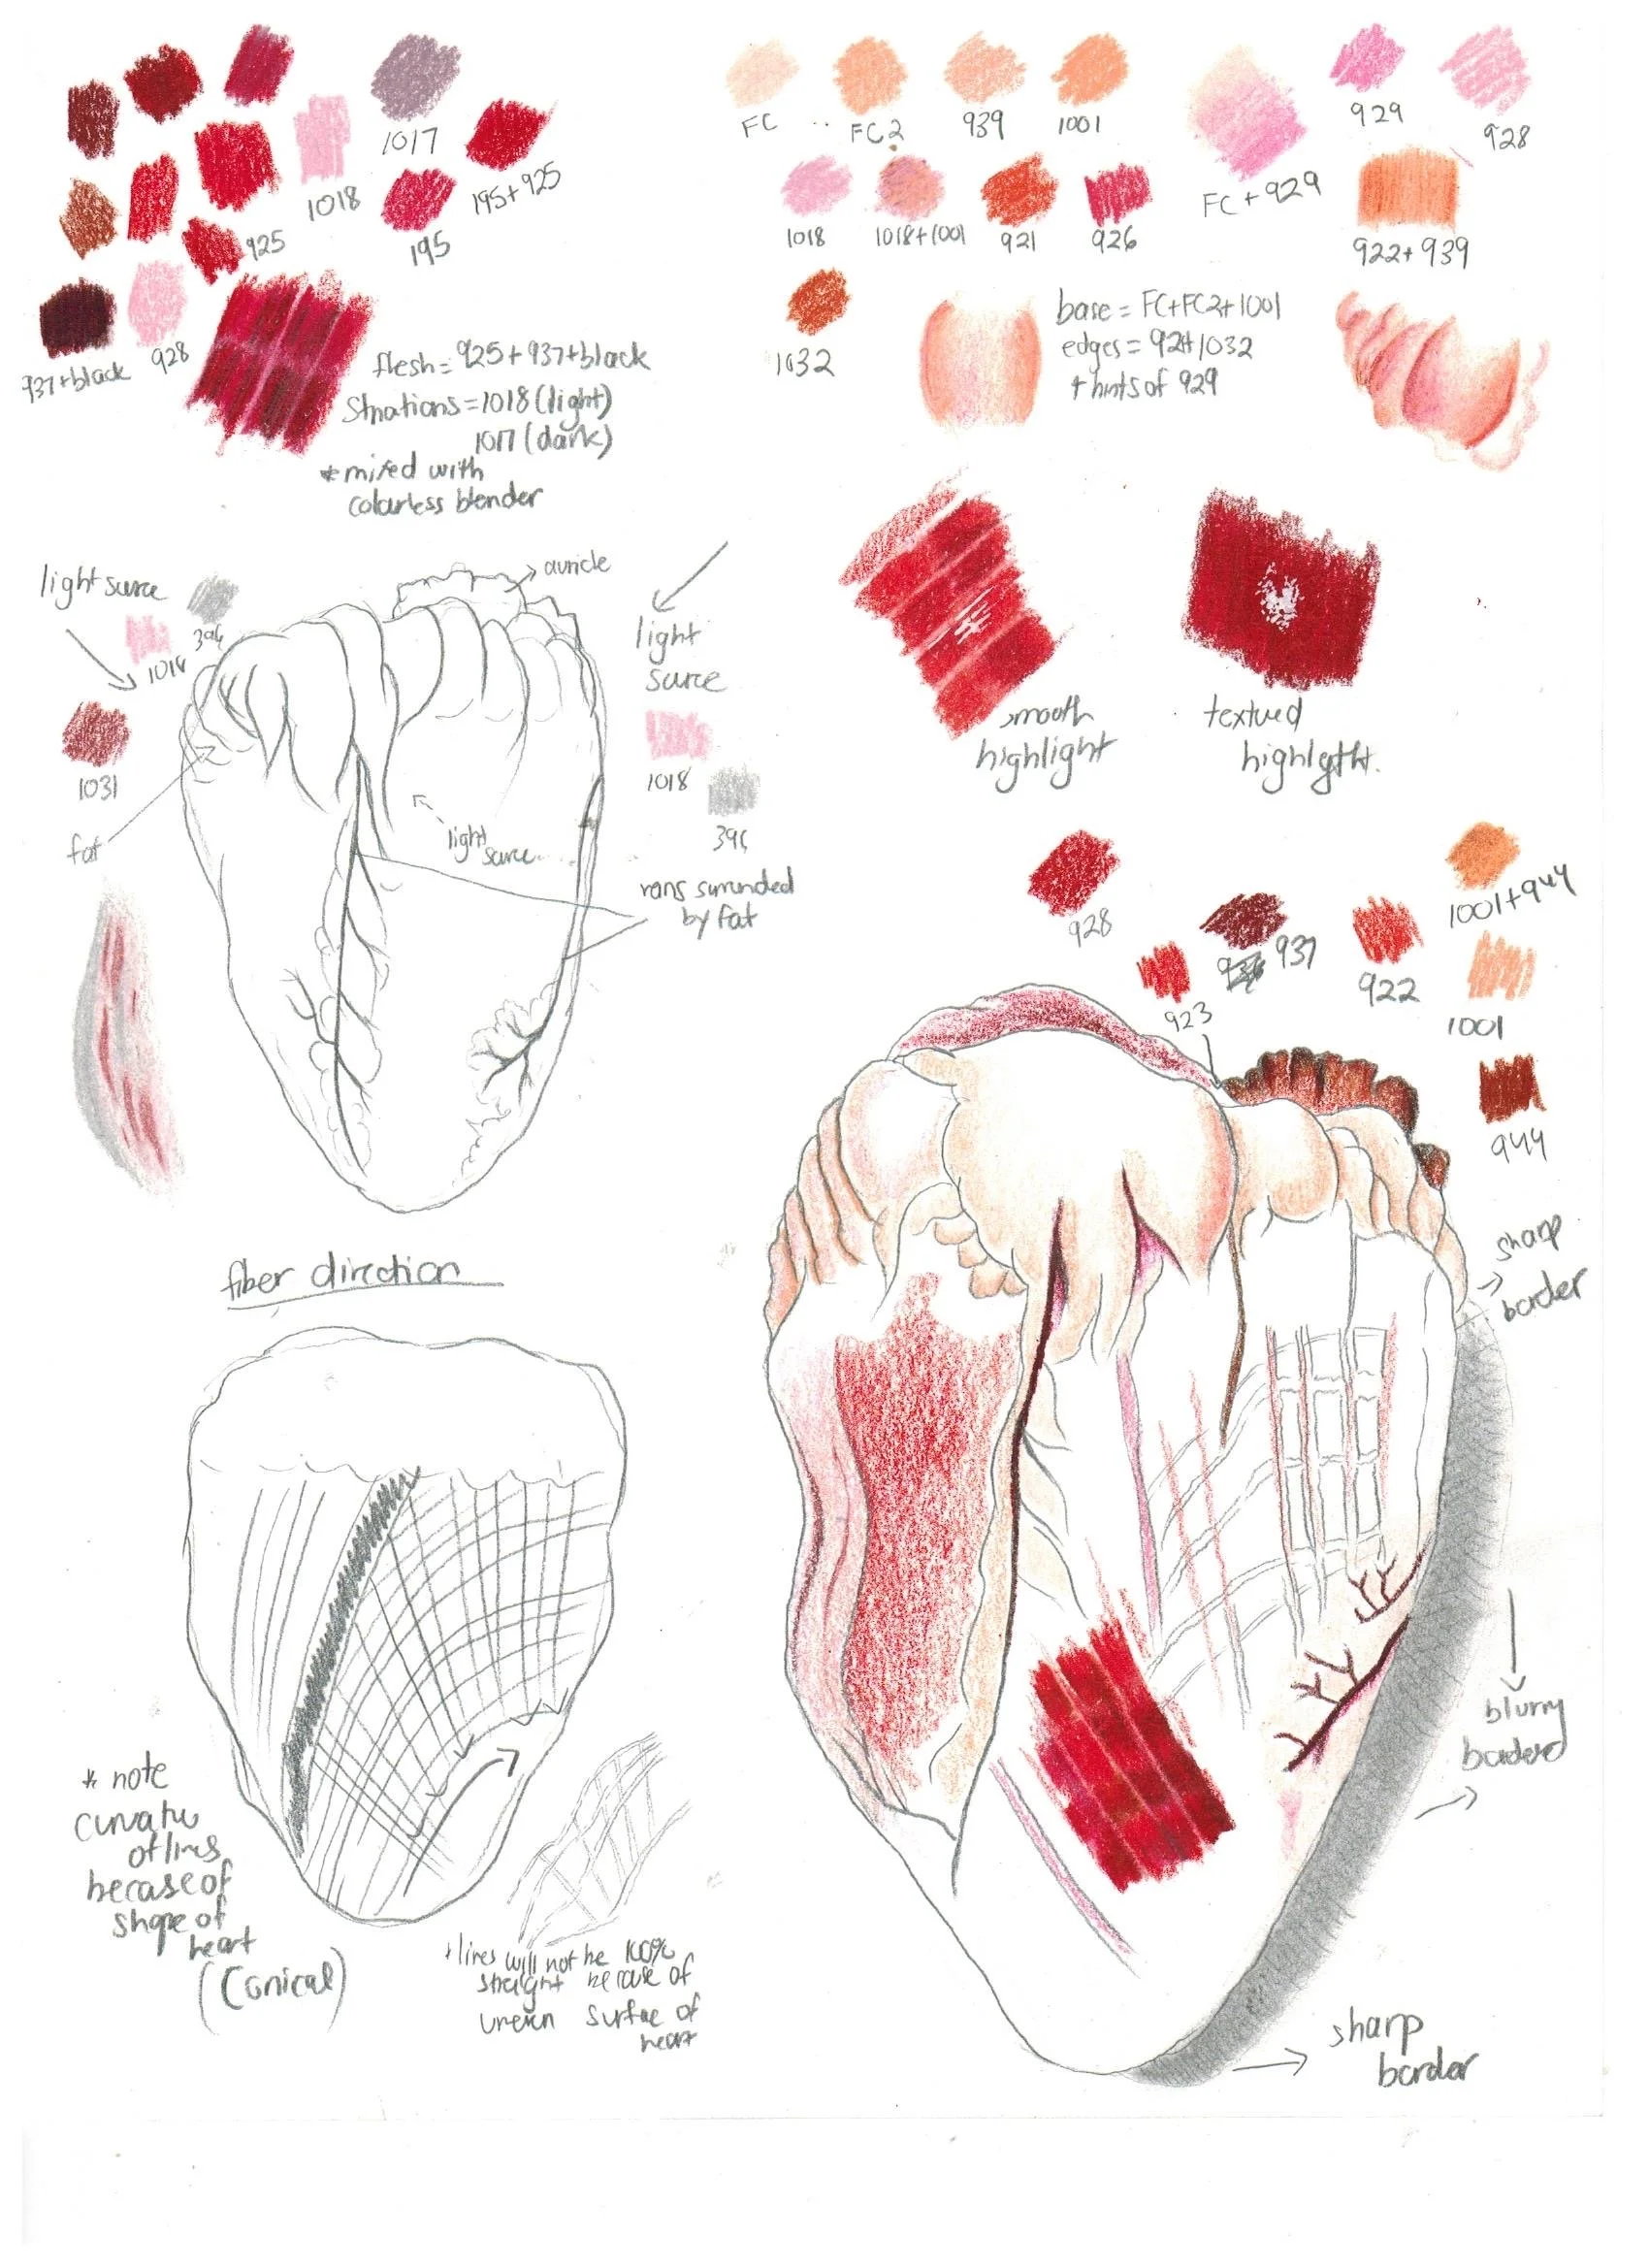 1017
1018
195+925
925
195
937+black
928
flesh = 925+937+black
Striations = 1018 (light)
1017 (dark)
* mixed with
colourless blender
FC
FC2
939
1001
929
928
FC + 929
1018
1018+1001
921
926
922+939
1032
base = FC+FC2+1001
+ hints of 929
smooth
highlight
light
394
1031
fat
auricle
light
1018
light
by fat
928
923
937
922
1001+944
1001
944
sharp
border
blurry
sharp
border
fiber direction
* note
of lines
shape of
heart
(Conical)
lines will not be 100%
straight because of
surface of
heart